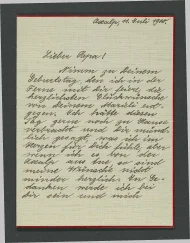 Lieber Papa!
Nimm zu Deinem
Geburtstag, den ich in der
Ferne mit dir feire, die
herzlichsten Glückwünsche
von deinem
gegen. Ich hätte diesen
Tag gerne noch zu Hause
verbracht und dir
gesagt, was ich im
Herzen für dich fühle, aber
wenn ich es von der
aus tue so sind
meine Wünsche nicht
minder herzlich. In Ge-
danken werde ich bei
dir sein und mich